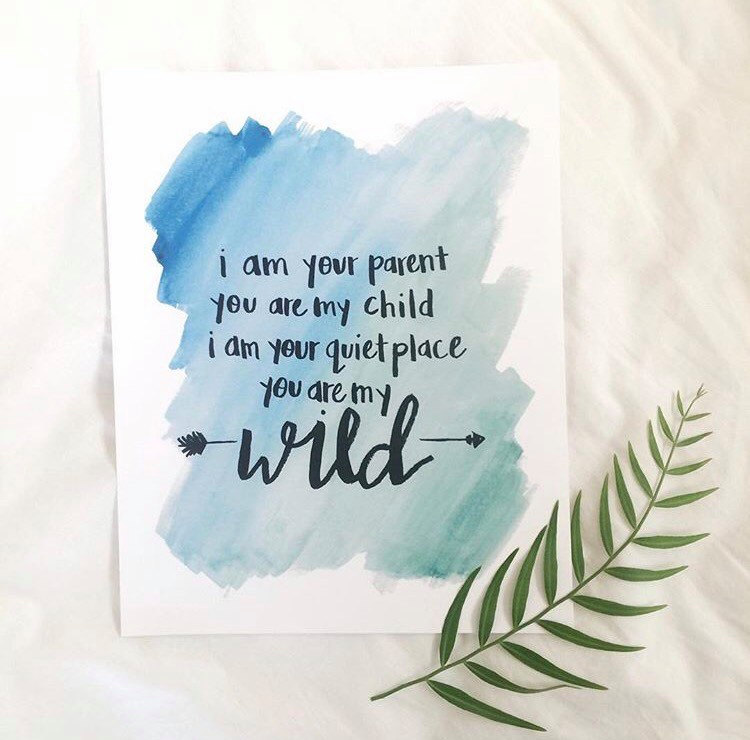 i am your parent
you are my child
i am your quiet place
you are my
wild